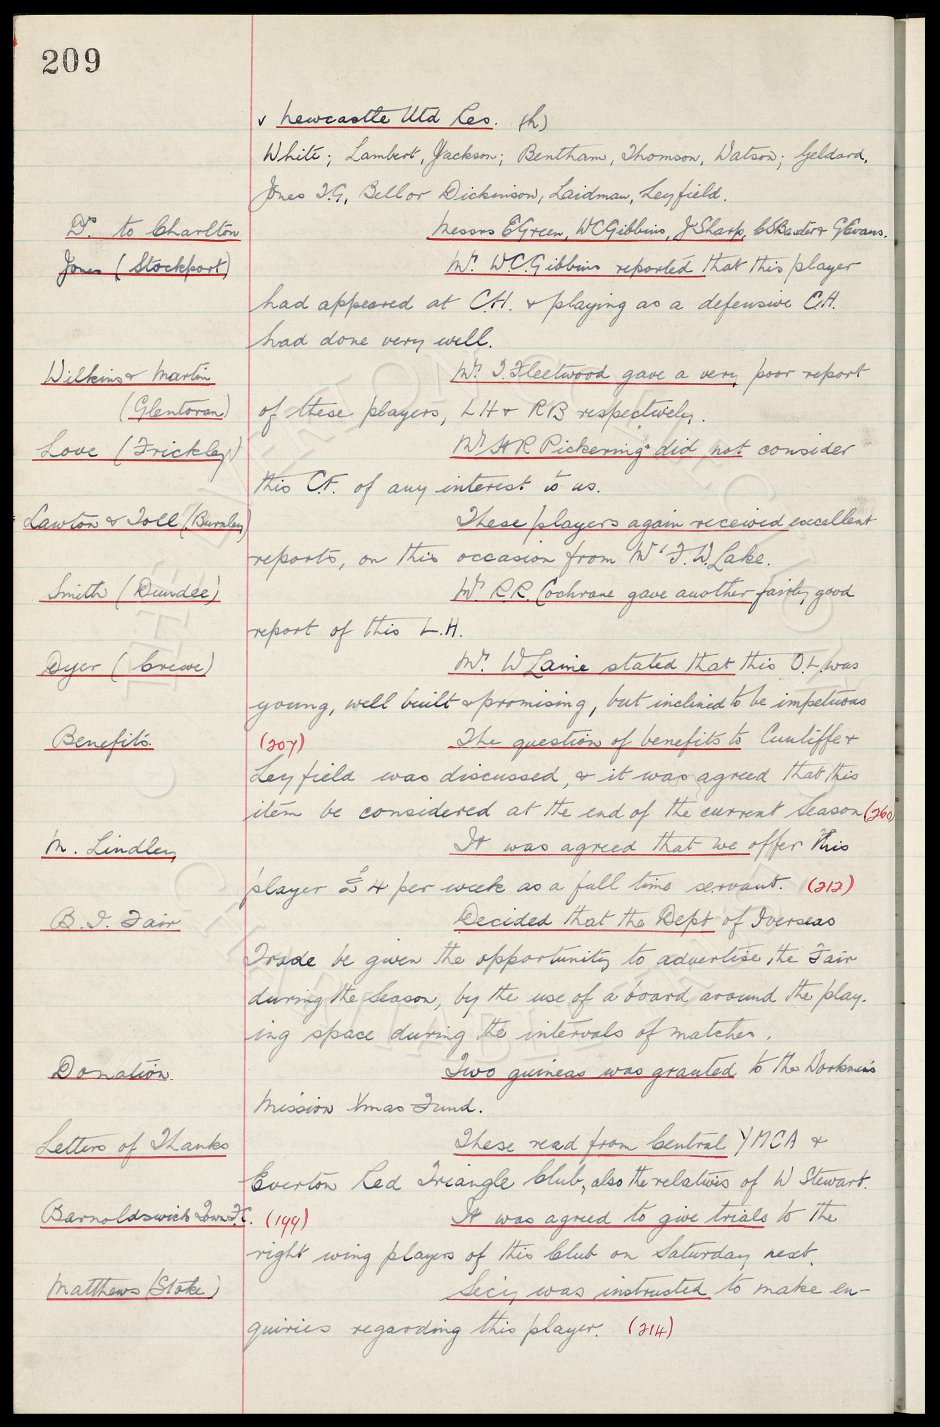 209
v Newcastle Utd Res. (h)
White; Lambert, Jackson; Bentham, Thomson, Watson; Geldard,
Jones T.G, Bell or Dickinson, Laidman, Leyfield.
Drs. to Charlton Messrs E Green, WC Gibbins, J Sharp, C S Baxter & G Evans.
Jones (Stockport) Mr. W C. Gibbins reported that this player
had appeared at C.H. & playing as a defensive C.H.
had done very well.
Wilkins & Martin Mr. T Fleetwood gave a very poor report
(Glentoran) of these players, L H & R B respectively.
Love (Frickley) Mr H R Pickering did not consider
this C.F. of any interest to us.
Lawton & Toll (Burnley) These players again received excellent
reports, on this occasion from Mr. F. W. Lake.
Smith (Dundee) Mr. R.R. Cochrane gave another fairly good
report of this L.H.
Dyer (Crewe) Mr. W Laine stated that this O.L. was
young, well built & promising, but inclined to be impetuous
Benefits. (207) The question of benefits to Cunliffe &
Leyfield was discussed, & it was agreed that this
item be considered at the end of the current Season (260)
M. Lindley It was agreed that we offer this
player £4 per week as a full time servant. (212)
B. I. Fair Decided that the Dept of Overseas
Trade be given the opportunity to advertise the Fair
during the Season, by the use of a board around the play-
ing space during the intervals of matches.
Donation. Two guineas was granted to the Workmen's
Mission Xmas Fund.
Letters of Thanks These read from Central YMCA &
Everton Red Triangle Club, also the relatives of W Stewart.
Barnoldswick Town F.C. (199) It was agreed to give trials to the
right wing players of this Club on Saturday next.
Matthews (Stoke) Secy was instructed to make en-
quiries regarding this player. (214)